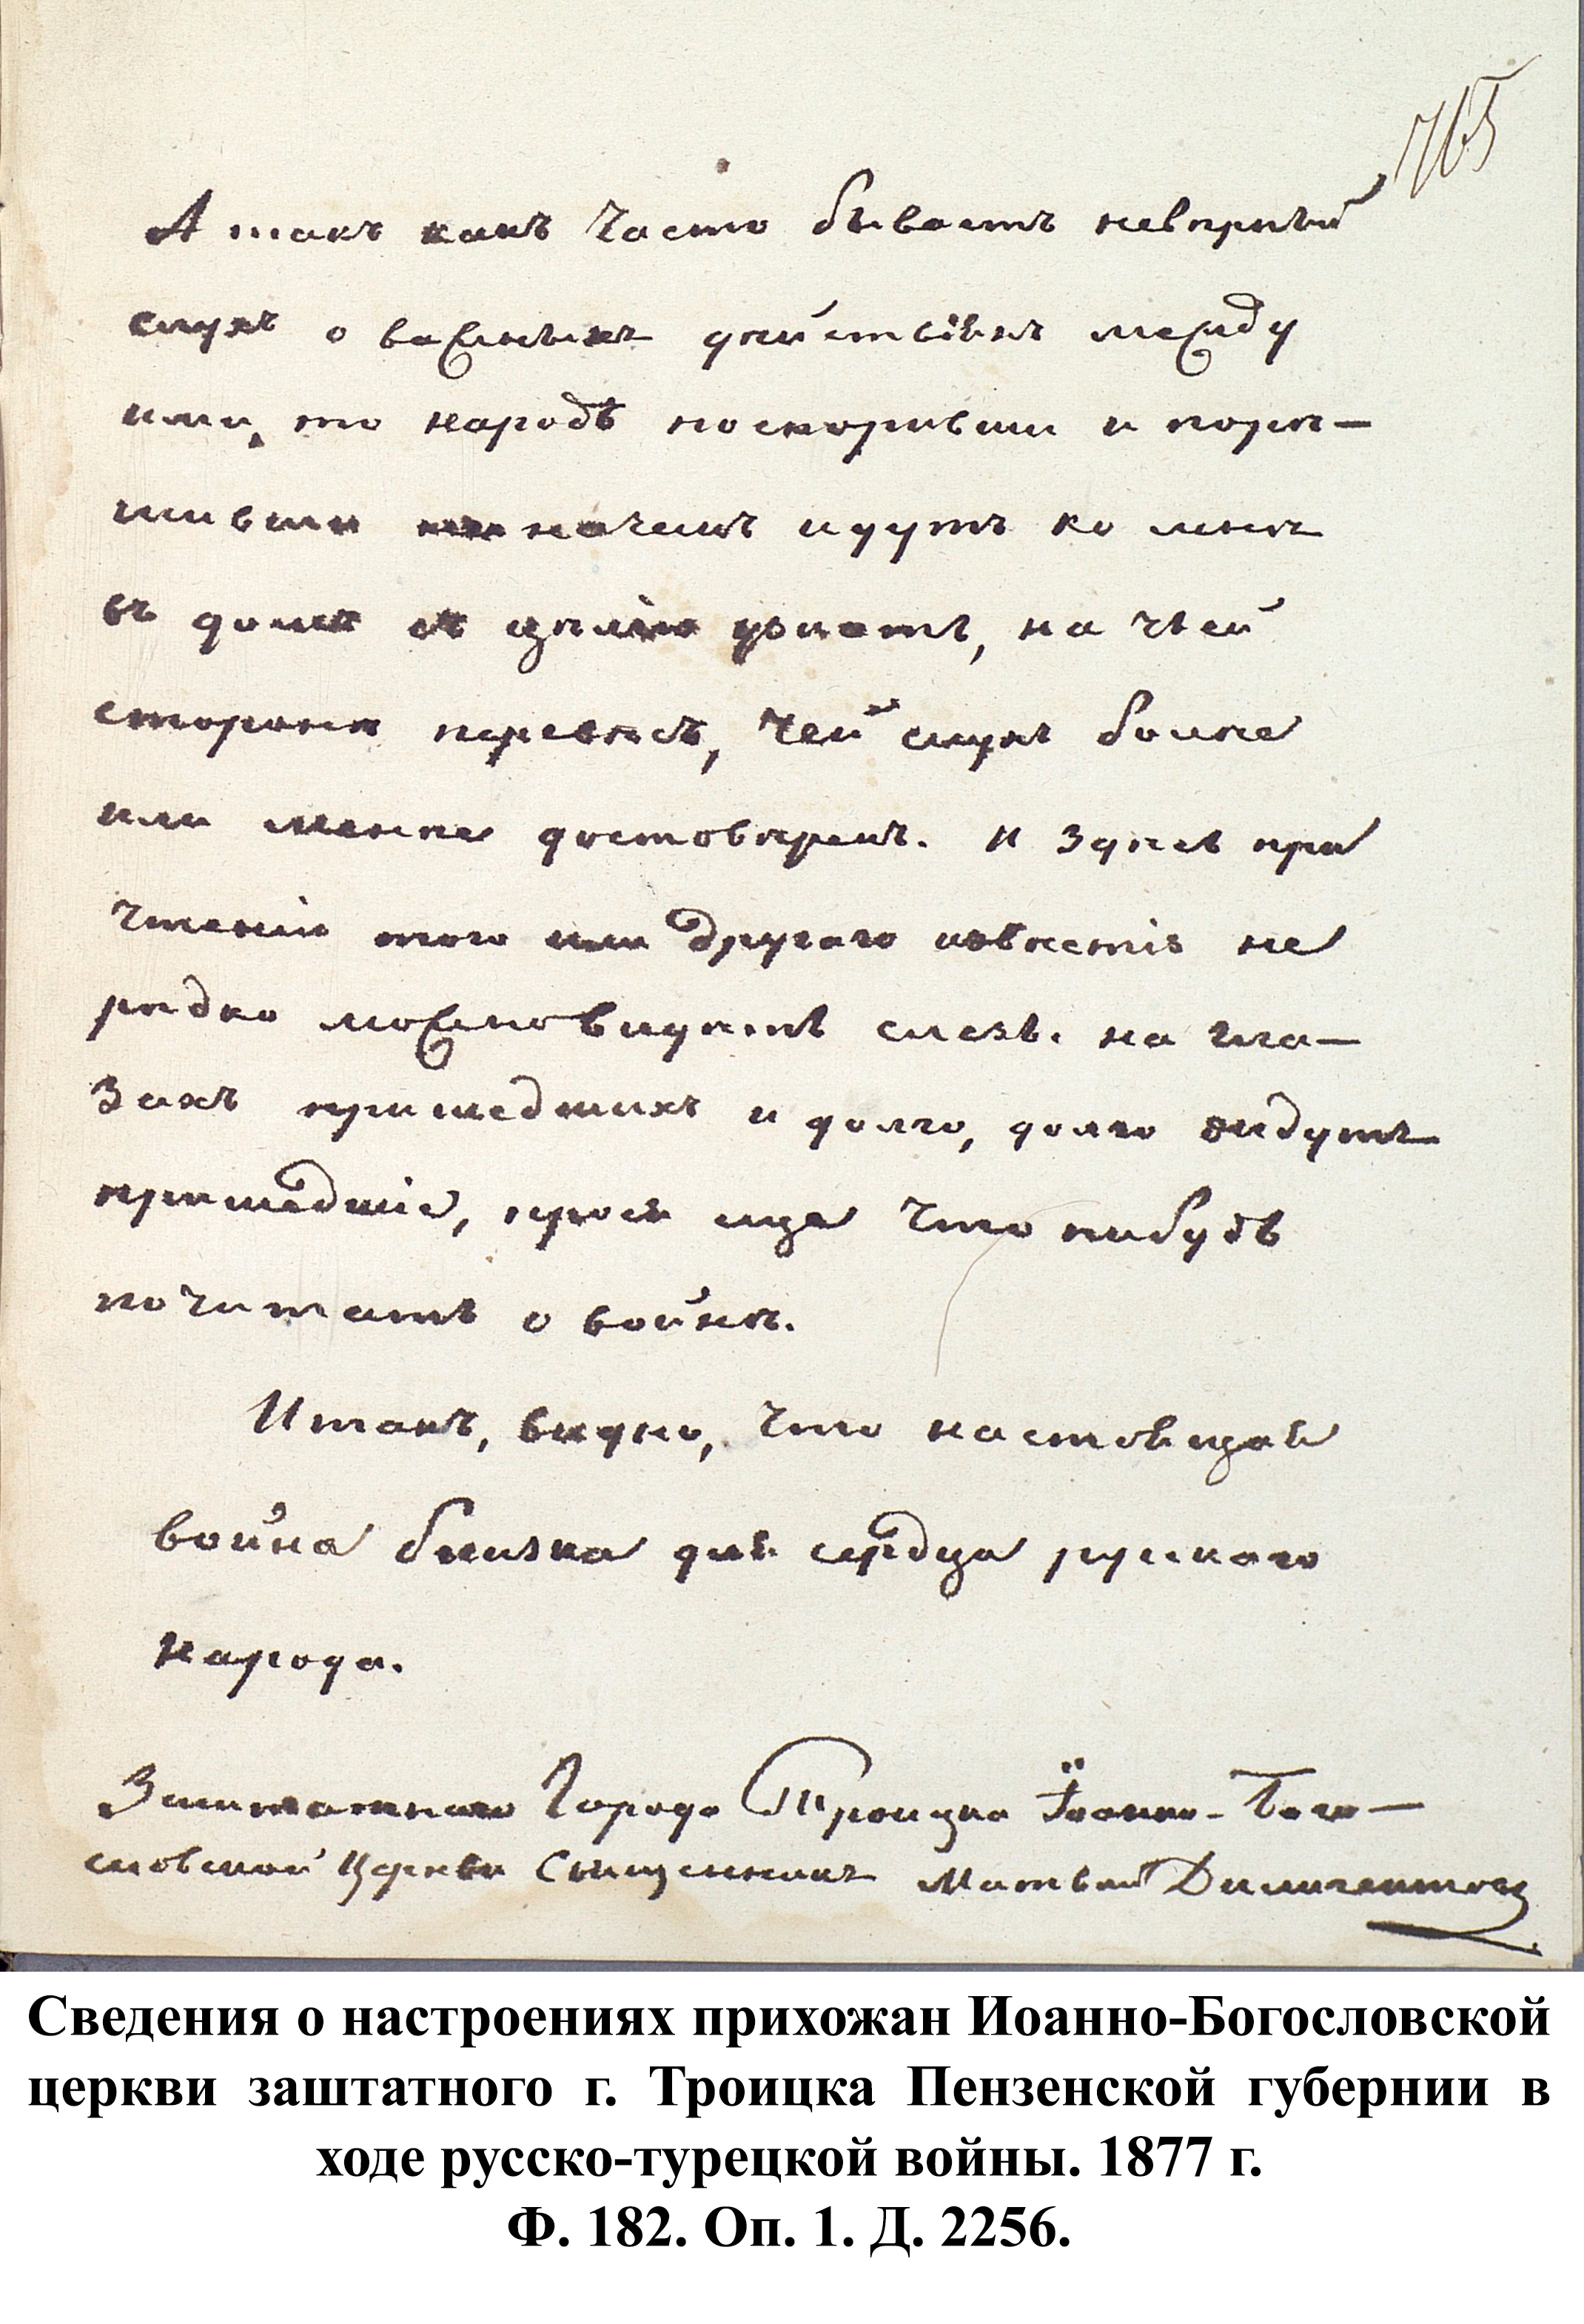 765
А такъ какъ часто бываетъ неверный
слухъ о важныхъ дѣйствіяхъ между
ими, то народъ поспоривши и порѣ-
шивши начемъ идутъ ко мнѣ
въ домъ съ цѣлію узнать, на чьей
сторонѣ перевѣсъ, чей слухъ болѣе
или менѣе достовѣренъ. И здѣсь при
чтеніи того или другаго извѣстія не
рѣдко можно видѣть слезы на гла-
захъ пришедшихъ и долго, долго сидутъ
пришедшіе, прося еще что нибудь
почитать о войнѣ.
Итакъ, видно, что настоящая
война близка для сердца рускаго
народа.
Заштатнаго Города Троицка Іоанно-Бого-
словской Церкви Священникъ Матвѣй Дилигентовъ
Сведения о настроениях прихожан Иоанно-Богословской
церкви заштатного г. Троицка Пензенской губернии в
ходе русско-турецкой войны. 1877 г.
Ф. 182. Оп. 1. Д. 2256.